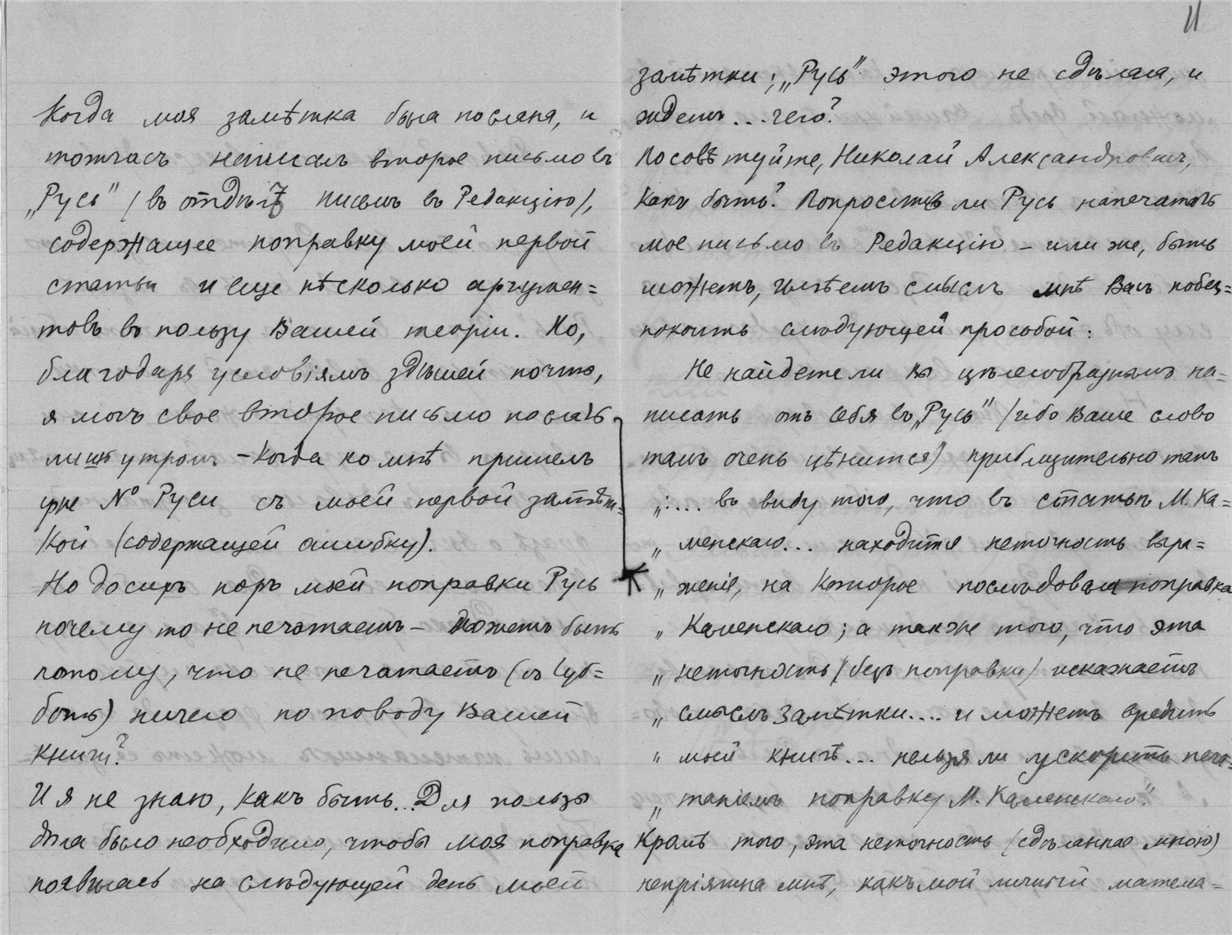 Когда моя замѣтка была послана, я
тотчасъ написалъ второе письмо въ
„Русь" (въ отдѣлѣ писемъ въ Редакцію),
содержащее поправку моей первой
статьи и еще нѣсколько аргумен=
товъ въ пользу Вашей теоріи. Но,
благодаря условіямъ здѣшней почты,
я могъ свое второе письмо послать
лишь утромъ – когда ко мнѣ пришелъ
уже № Руси съ моей первой замѣт=
кой (содержащей ошибку).
Но до сихъ поръ моей поправки Русь
почему то не печатаетъ – можетъ быть
потому, что не печатаетъ (въ суб=
боты) ничего по поводу Вашей
книги?
И я не знаю, какъ быть. Для пользы
дѣла было необходимо, чтобы моя поправка
появилась на слѣдующей день моей
11
замѣтки; „Русь" этого не сдѣлала, и
ждетъ... чего?
Посовѣтуйте, Николай Александровичъ,
какъ быть? Попросить ли Русь напечатать
мое письмо въ Редакцію – или же, быть
можетъ, имѣетъ смыслъ мнѣ Васъ побез=
покоить слѣдующей просьбой:
Не найдете ли вы цѣлесообразнымъ на=
писать отъ себя въ „Русь" (ибо Ваше слово
тамъ очень цѣнится) приблизительно такъ
„:... въ виду того, что въ статьѣ М. Ка=
„ менскаго... находится неточность выра=
„ женія, на которое послѣдовала поправка
„ Каменскаго; а также того, что эта
„ неточность (безъ поправки) искажаетъ
„ смыслъ замѣтки.... и можетъ вредить
„ моей книгѣ... нельзя ли ускорить печа=
„ таніемъ поправку М. Каменскаго".
Кромѣ того, эта неточность (сдѣланная мною)
непріятна мнѣ, какъ мой личный матема=